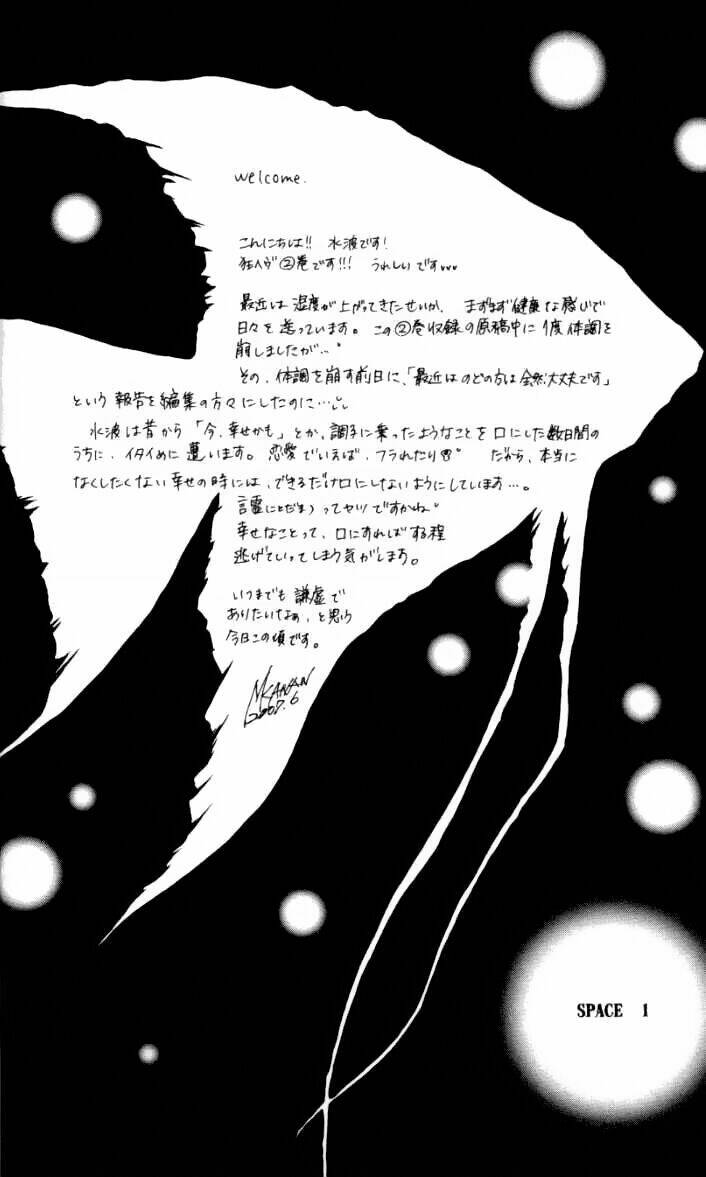 welcome.
こんにちは!! 水波です!
狂ヘヴ②巻です!!! うれしいです
最近は湿度が上がってきたせいか、まずまず健康な喉で
日々を送っています。この②巻収録の原稿中に1度体調を
崩しましたが…。
その、体調を崩す前日に、「最近はのどの方は全然大丈夫です」
という報告を編集の方々にしたのに…
水波は昔から「今、幸せかも」とか、調子に乗ったようなことを口にした数日間の
うちに、イタイめに遭います。恋愛でいえば、フラれたり だから、本当に
なくしたくない幸せの時には、できるだけ口にしないようにしています…。
言霊(ことだま)ってヤツですかね。
幸せなことって、口にすればする程
逃げていってしまう気がします。
いつまでも謙虚で
ありたいなぁ、と思う
今日この頃です。
KANAN
6
SPACE 1